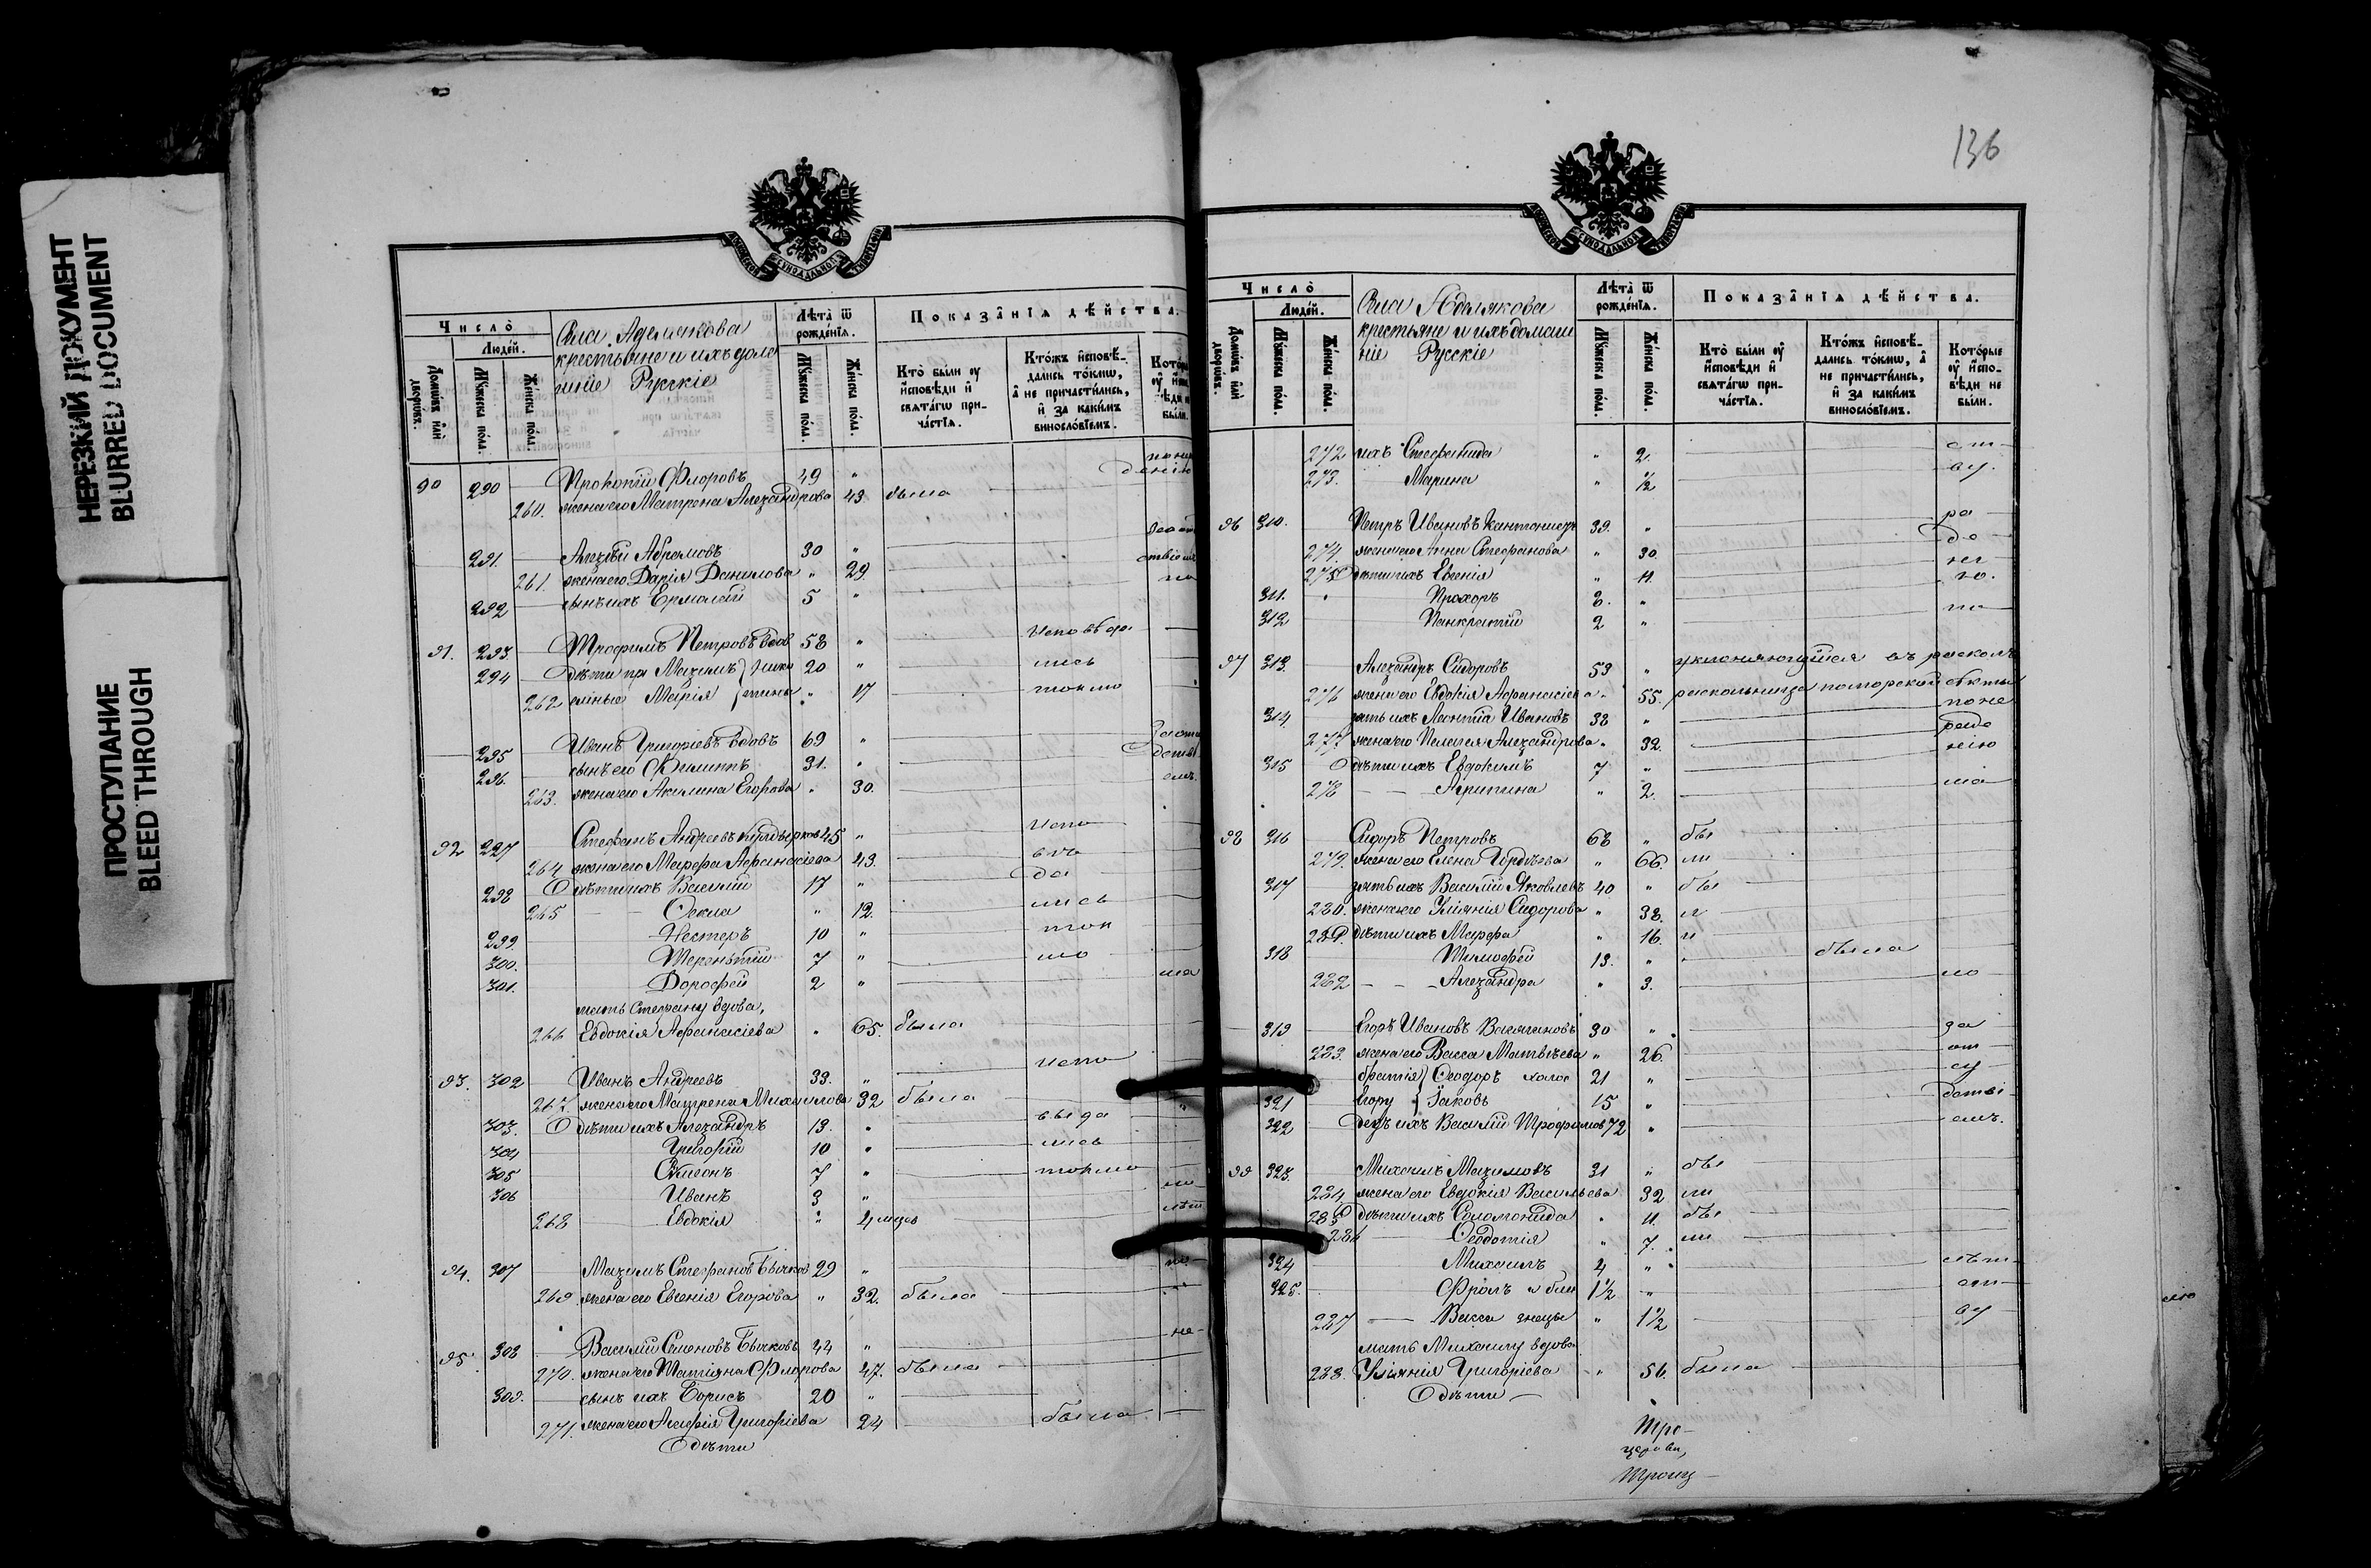 НЕРЕЗКИЙ ДОКУМЕНТ
BLURRED DOCUMENT
ПРОСТУПАНИЕ
BLEED THROUGH
Число̀
Люде́й.
Домѡ́въ и҆лѝ дворѡ́въ.
Мꙋ́жеска по́лꙋ.
Же́нска по́лꙋ.
Села Аделякова
крестьяне и ихъ дома
шнiе Русскiе
Лѣ́та ѿ рожде́нїѧ.
Мꙋ́жеска по́лꙋ.
Же́нска по́лꙋ.
Показа̑нїѧ дѣ́йства.
Кто̀ бы́ли оу҆ и҆сповѣ́ди и҆ свѧта́гѡ прича́стїѧ.
Кто́жъ и҆сповѣ́дались то́кмѡ, а҆ не причасти́лись, и҆ за каки́мъ винослові́емъ.
90 290 Прокопій Флоровъ 49 "
260. жена его Матрена Александрова 43. была
291. Алексѣй Абрамовъ 30 "
261. жена его Дарія Данилова " 29
292 сынъ ихъ Ермолай 5 "
91. 293. Трофимъ Петровъ вдов 58 " исповѣда
294 дѣти Максимъ 20 " лись
262 Марія " 17 токмо
295 Иванъ Григорьевъ вдовъ 69 "
296. сынъ его Филиппъ 31. "
263. жена его Акилина Егорова " 30.
92 297 Стефанъ Андреевъ 45 " испо
264 жена его Марфа Афанасіева 43. вѣ
298 дѣти ихъ Василій 17 " да
265 Ѳекла " 12. лись
299. Нестеръ 10 " ток
300. Терентій 7 " мо
301. Дорофей 2 " ма
мать Стефану вдова,
266 Евдокія Афанасіева " 65. была
93. 302 Иванъ Андреевъ 33. " испо
267. жена его Матрена Михайлова 32 была
303. дѣти ихъ Александръ 13. " вѣда
304 Григорій 10 " лись
305 Симеонъ 7 " токмо
306 Иванъ 3 "
268 Евдокія " 4 мцов
94. 307 Максимъ Стефанов Бычков 29 "
269. жена его Евгенія Егорова " 32. была
95. 308 Василій Семеновъ Бычковъ 44 " не
270. жена его Татіяна Флорова 47. была
309. сынъ ихъ Борисъ 20 "
271. жена его Агафія Григорьева 24 была
дѣти
136
Число̀
Люде́й.
Домѡ́въ и҆лѝ дворѡ́въ.
Мꙋ́жеска по́лꙋ.
Же́нска по́лꙋ.
Села Аделякова
крестьяне и ихъ домаш
ніе Русскіе
Лѣ́та ѿ рожде́нїѧ.
Мꙋ́жеска по́лꙋ.
Же́нска по́лꙋ.
Показа̑нїѧ дѣ́йства.
Кто̀ бы́ли оу҆ и҆сповѣ́ди и҆ свѧта́гѡ прича́стїѧ.
Кто́жъ и҆сповѣ́дались то́кмѡ, а҆ не причасти́лись, и҆ за каки́мъ винослові́емъ.
Кото́рые оу҆ и҆сповѣ́ди не бы́ли.
272 ихъ Стефанида " 2.
273. Марина " ½
96 310. Петръ Ивановъ Кантонистъ 39. "
274. жена его Анна Стефанова " 30.
275 дѣти ихъ Евгенія " 11.
311. Прохоръ 8. "
312 Панкратій 2 "
97 313. Александръ Сидоровъ 53 " уклоняющійся въ расколъ
276 жена его Евдокія Афанасіева " 55. раскольница поморской секты
314 зять ихъ Леонтій Ивановъ 38 " по не
277 жена его Пелагея Александрова " 32. раде
315 дѣти ихъ Евдокимъ 7 " нію
278 Агрипина " 2. ма
98 316 Сидоръ Петровъ 68 " бы
279. жена его Елена Гордѣева " 66. ли
317 зять ихъ Василій Яковлевъ 40 " бы
280. жена его Уліянія Сидорова " 38. л
281. дѣти ихъ Марфа " 16. и
318 Тимофей 13. " была
282 Александра " 3.
319 Егоръ Ивановъ 30 " за
283. жена его Васса Матвѣева " 26. от
братія Ѳеодоръ холос 21 " су
321 Егору Іаковъ 15 " стві
322 дедъ ихъ Василій Трофимов 72 " емъ.
99 323. Михаилъ Максимовъ 31 " бы
284. жена его Евдокія Васильева 32 ли
285 дѣти ихъ Соломонида " 11. бы
286 Ѳедотія " 7. ли
324 Михаилъ 4 "
325. Фролъ и бли 1½ "
287 Васса знецы " 1½
мать Михаилу вдова
288. Уліянія Григоріева " 56. была
дѣти